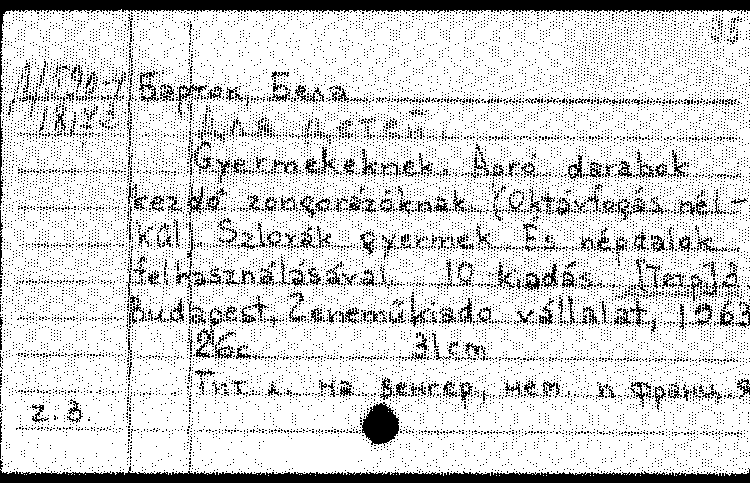 Барток, Бела
18143
Для детей.
Gyermekeknek. Apró darabok
kezdő zongorázóknak (Oktávfogás nél-
kül) Szlovák gyermek És népdalok
felhasználásával. 10 kiadás. [Terp] 3
Budapest, Zeneműkiado vállalat, 1963
26c. 31cm
Тит. л. на венгер, нем. и франц. я
г. 3.